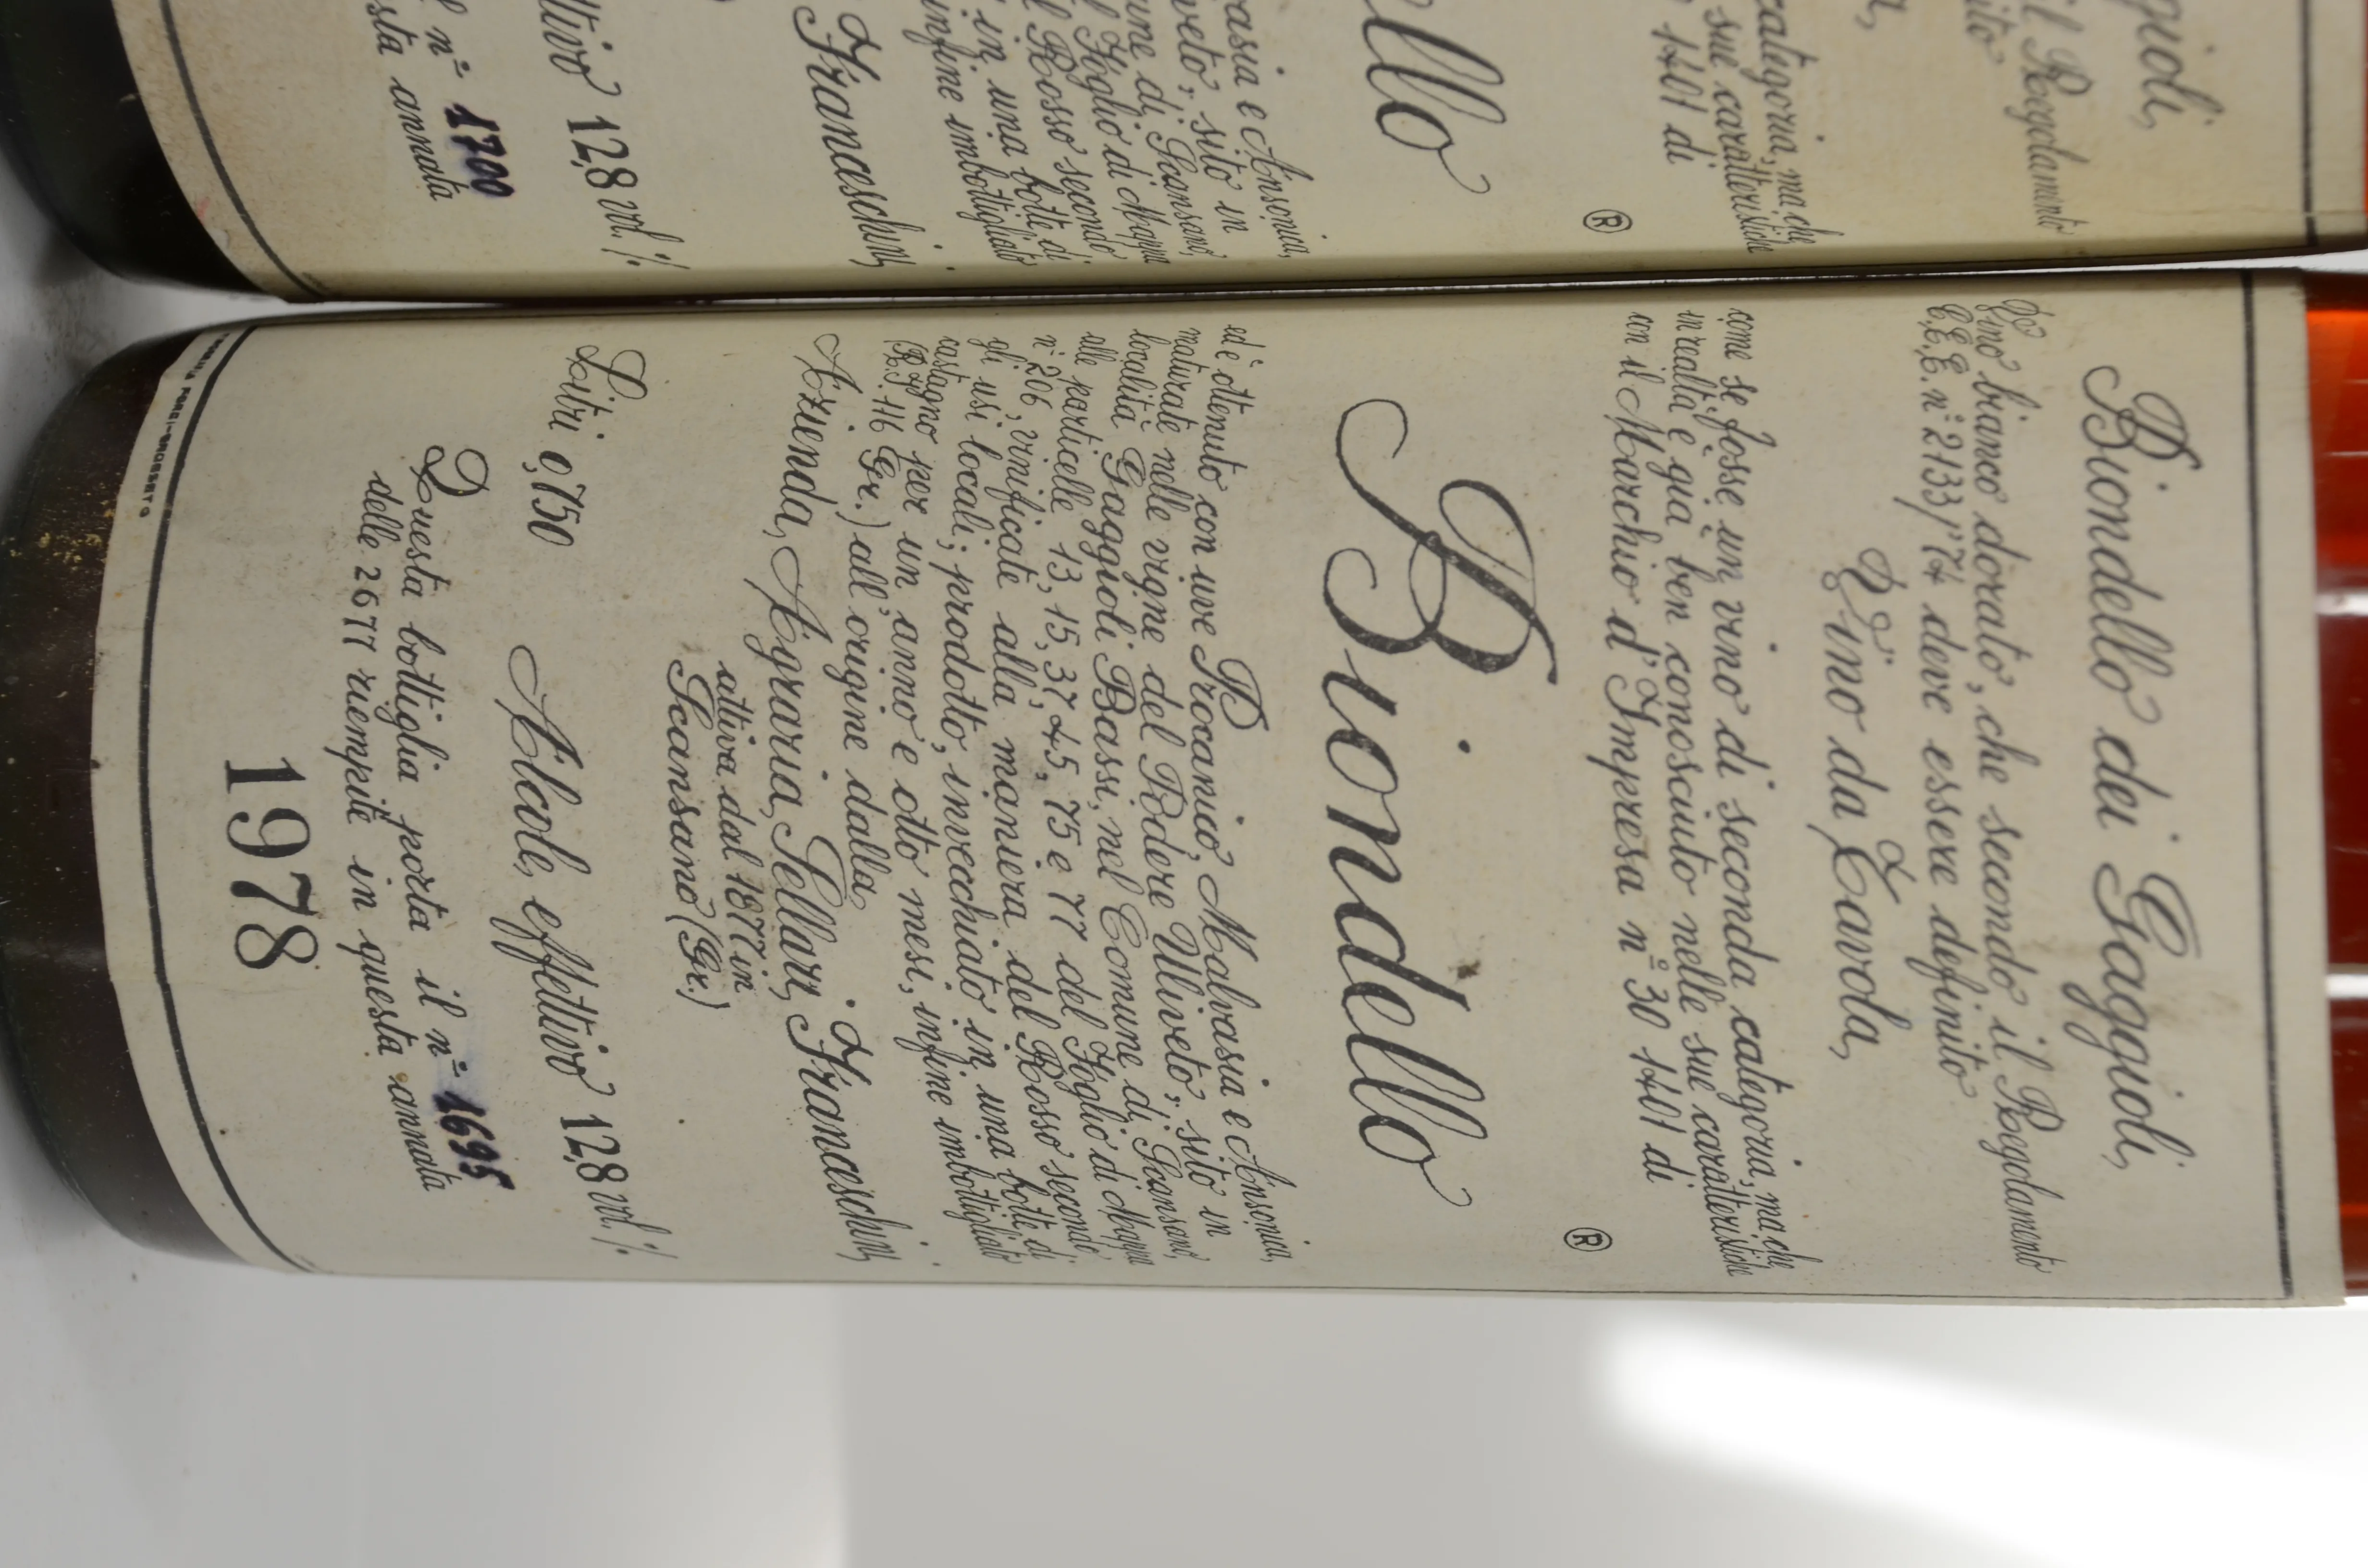 Biondello dei Gaggioli,
Vino bianco dorato, che secondo il Regolamento
C.E.E. n° 2133/'74 deve essere definito
Vino da Tavola,
come se fosse un vino di seconda categoria, ma che
in realtà è già ben conosciuto nelle sue caratteristiche
con il Marchio d'Impresa n° 301401 di
®
Biondello
ed è ottenuto con uve Procanico, Malvasia e Ansonica,
maturate nelle vigne del Podere Uliveto, sito in
località Gaggioli Bassi, nel Comune di Scansano,
alle particelle 13, 15, 37, 45, 75 e 77 del Foglio di Mappa
n° 206, vinificate alla maniera del Rosso secondo
gli usi locali; prodotto, invecchiato in una botte di
castagno per un anno e otto mesi, infine imbottigliato
(R.I. 116 Gr.) all'origine dalla
Azienda Agraria Sellari Franceschini
attiva dal 1877 in
Scansano (Gr.)
Litri 0,750 Alcole effettivo 12,8 vol. %
Questa bottiglia porta il n° 1695
delle 2677 riempite in questa annata
1978
gioli,
il Regolamento
ito
a,
categoria, ma che
sue caratteristiche
1401 di
®
ello
asia e Ansonica,
veto, sito in
une di Scansano,
l Foglio di Mappa
l Rosso secondo
in una botte di
infine imbottigliato
Franceschini
ttivo 12,8 vol. %
l n° 1700
sta annata